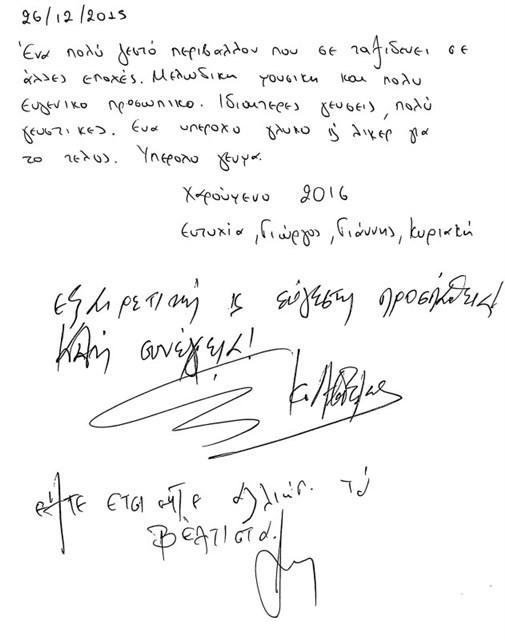 26/12/2015
Ένα πολύ ζεστό περιβαλλον που σε ταξιδευει σε
άλλες εποχές. Μελωδικη μουσικη και πολυ
ευγενικο προσωπικο. Ιδιαιτερες γευσεις, πολύ
γευστικες. Ενα υπεροχο γλυκο ή λικερ για
το τελος. Υπεροχο γευμα.
Χαρούμενο 2016
Ευτυχία, Γιώργος, Γιάννης, Κυριακή
Εξαιρετική & εύγεστη προσπάθεια!
Καλή συνέχεια!
είτε ετσι είτε αλλιώς. τα
Βέλτιστα.